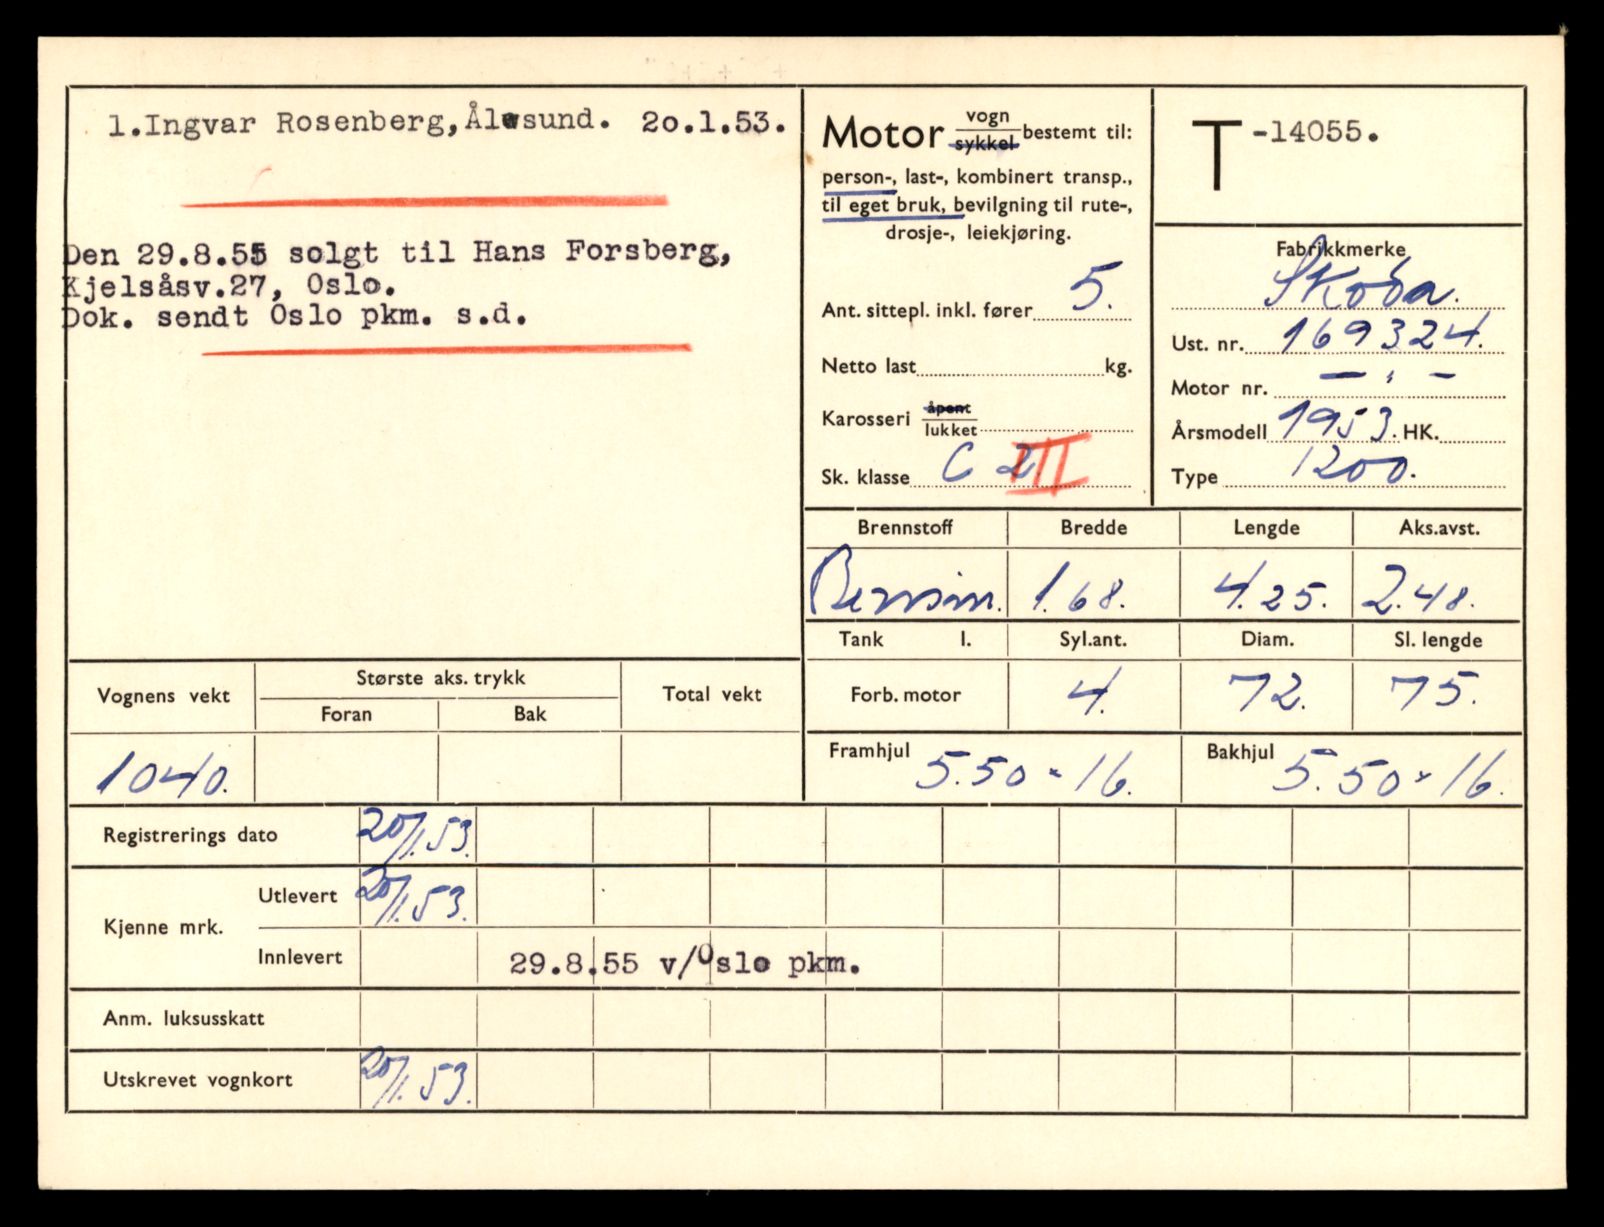 1.Ingvar Rosenberg,Ålesund. 20.1.53.
Den 29.8.55 solgt til Hans Forsberg,
Kjelsåsv.27, Oslo.
Dok. sendt Oslo pkm. s.d.
Motor vogn sykkel bestemt til:
person-, last-, kombinert transp.,
til eget bruk, bevilgning til rute-,
drosje-, leiekjøring.
Ant. sittepl. inkl. fører 5.
Netto last kg.
Karosseri åpent lukket
Sk. klasse C 2 III
T -14055.
Fabrikkmerke
Skoda.
Ust. nr. 169324.
Motor nr. — „ —
Årsmodell 1953. HK.
Type 1200.
Brennstoff Bredde Lengde Aks.avst.
Bensin. 1.68. 4.25. 2.48.
Tank l. Syl.ant. Diam. Sl. lengde
Forb. motor 4. 72. 75.
Framhjul 5.50 x 16. Bakhjul 5.50 x 16.
Vognens vekt Største aks. trykk Total vekt
Foran Bak
1040.
Registrerings dato 20/1.53.
Kjenne mrk. Utlevert 20/1.53.
Innlevert 29.8.55 v/Oslo pkm.
Anm. luksusskatt
Utskrevet vognkort 20/1.53.